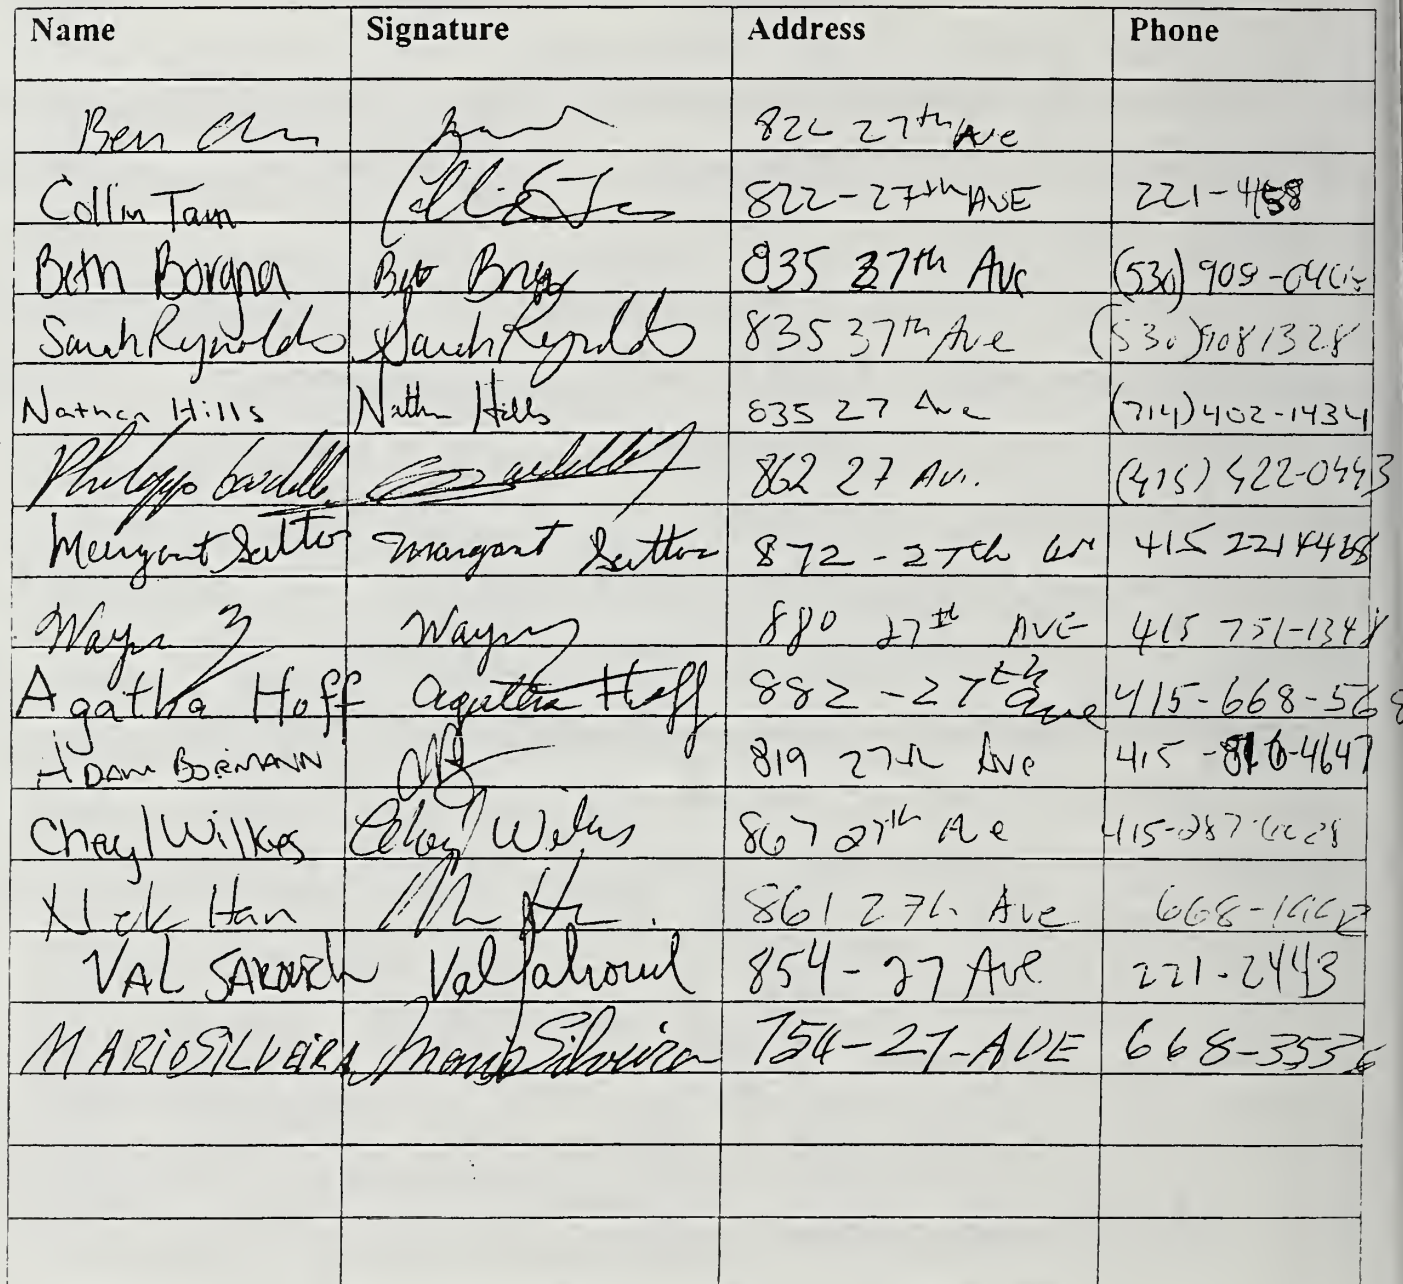 Name Signature Address Phone
Ben 27th Ave
Collin Tam Collin Tam 822-27th AVE 221-4158
Beth Borgna Beth 835 27th Ave (530) 909-
Sarah Reynolds Sarah Reynolds 835 37th Ave (530)9081328
Nathan Hills Nathan Hills 835 27 Ave (714)402-1434
862 27 Ave. (415) 422-0443
Margaret Sutter Margaret Sutter 872-27th av 415 221
Wayn Wayn 880 27th AVE 415 751-1348
Agatha Hoff Agatha Hoff 882-27th Ave 415-668-568
ADAM BORMANN 819 27th Ave 415-816-4647
Cheryl Wilkes Cheryl Wilkes 867 27th Ave 415-287-
Nick Han 861 27th Ave 668-
VAL SAKOVICH Val Sakovich 854-27 Ave 221-2443
MARIO SILVEIRA Mario Silveira 754-27-AVE 668-3536